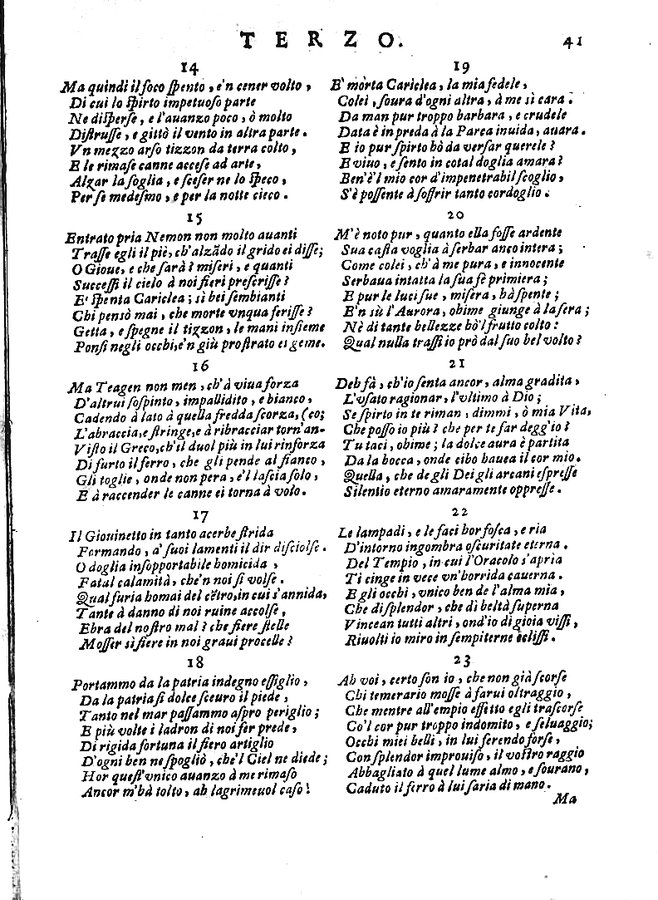 TERZO. 41
14
Ma quindi il foco spento, e'n cener volto,
Di cui lo spirto impetuoso parte
Ne disperse, e l'auanzo poco, ò molto
Distrusse, e gittò il vento in altra parte.
Vn mezzo arso tizzon da terra colto,
E le rimase canne accese ad arte,
Alzar la soglia, e sceser ne lo speco,
Per se medesmo, e per la notte cieco.
15
Entrato pria Nemon non molto auanti
Trasse egli il piè, ch'alzādo il grido ei disse;
O Gioue, e che sarà? miseri, e quanti
Successi il cielo à noi fieri prescrisse?
E' spenta Cariclea; sì bei sembianti
Chi pensò mai, che morte vnqua ferisse?
Getta, e spegne il tizzon, le mani insieme
Ponsi negli occhi, e'n giù prostrato ei geme.
16
Ma Teagen non men, ch'à viua forza
D'altrui sospinto, impallidito, e bianco,
Cadendo à lato à quella fredda scorza, (co;
L'abraccia, e stringe, e à ribracciar torn'an-
Visto il Greco, ch'il duol più in lui rinforza
Di furto il ferro, che gli pende al fianco,
Gli toglie, onde non pera, e'l lascia solo,
E à raccender le canne ei torna à volo.
17
Il Giouinetto in tanto acerbe strida
Formando, a' suoi lamenti il dir disciolse.
O doglia insopportabile homicida,
Fatal calamità, che'n noi si volse.
Qual furia homai del cētro, in cui s'annida,
Tante à danno di noi ruine accolse,
Ebra del nostro mal? che fiere stelle
Mosser sì fiere in noi graui procelle?
18
Portammo da la patria indegno essiglio,
Da la patria sì dolce sceuro il piede,
Tanto nel mar passammo aspro periglio;
E più volte i ladron di noi fer prede,
Di rigida fortuna il fiero artiglio
D'ogni ben ne spogliò, che'l Ciel ne diede;
Hor quest'vnico auanzo à me rimaso
Ancor m'hà tolto, ah lagrimeuol caso!
19
E' morta Cariclea, la mia fedele,
Colei, soura d'ogni altra, à me sì cara.
Da man pur troppo barbara, e crudele
Data è in preda à la Parca inuida, auara.
E io pur spirto hò da versar querele?
E viuo, e sento in cotal doglia amara?
Ben'è'l mio cor d'impenetrabil scoglio,
S'è possente à soffrir tanto cordoglio.
20
M'è noto pur, quanto ella fosse ardente
Sua casta voglia à serbar anco intera;
Come colei, ch'à me pura, e innocente
Serbaua intatta la sua fè primiera;
E pur le luci sue, misera, hà spente;
E'n sù l'Aurora, obime giunge à la sera;
Nè di tante bellezze hò'l frutto colto:
Qual nulla trassi io prò dal suo bel volto?
21
Deh fà, ch'io senta ancor, alma gradita,
L'vsato ragionar, l'vltimo à Dio;
Se spirto in te riman, dimmi, ò mia Vita,
Che posso io più? che per te far degg'io?
Tu taci, obime; la dolce aura è partita
Da la bocca, onde cibo bauea il cor mio.
Quella, che de gli Dei gli arcani espresse
Silentio eterno amaramente oppresse.
22
Le lampadi, e le faci hor fosca, e ria
D'intorno ingombra oscuritate eterna.
Del Tempio, in cui l'Oracolo s'apria
Ti cinge in vece vn'horrida cauerna.
E gli occhi, vnico ben de l'alma mia,
Che di splendor, che di beltà superna
Vincean tutti altri, ond'io di gioia vissi,
Riuolti io miro in sempiterne eclissi.
23
Ah voi, certo son io, che non già scorse
Chi temerario mosse à farui oltraggio,
Che mentre all'empio effetto egli trascorse
Co'l cor pur troppo indomito, e seluaggio;
Occhi miei belli, in lui ferendo forse,
Con splendor improuiso, il vostro raggio
Abbagliato à quel lume almo, e sourano,
Caduto il ferro à lui saria di mano.
Ma